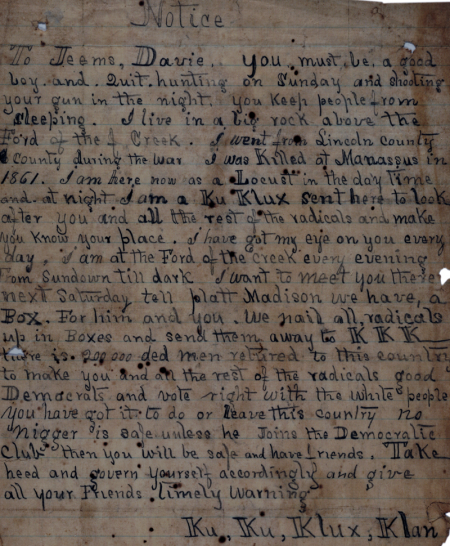 Notice
To Jeems, Davie. you. must. be. a good
boy. and. Quit. hunting on Sunday and shooting
your gun in the night. you keep people from
sleeping. I live in a big rock above the
Ford of the Creek. I went from Lincoln county
County during the war I was Killed at Manassus in
1861. I am here now as a Locust in the day Time
and. at night I am a Ku Klux sent here to look
after you and all the rest of the radicals and make
you know your place. I have got my eye on you every
day, I am at the Ford of the creek every evening
From Sundown till dark I want to meet you there
next Saturday tell platt Madison we have, a
Box. For him and you. We nail all, radicals
up in Boxes and send them away to KKK
there is. 200 000 ded men retured to this country
to make you and all the rest of the radicals good
Democrats and vote right with the white people
You have got it to do or leave this country no
nigger is safe unless he Joins the Democratic
Club then you will be safe and have friends. Take
heed and govern yourself accordingly and give
all your Friends timely warning
Ku, Ku, Klux, Klan